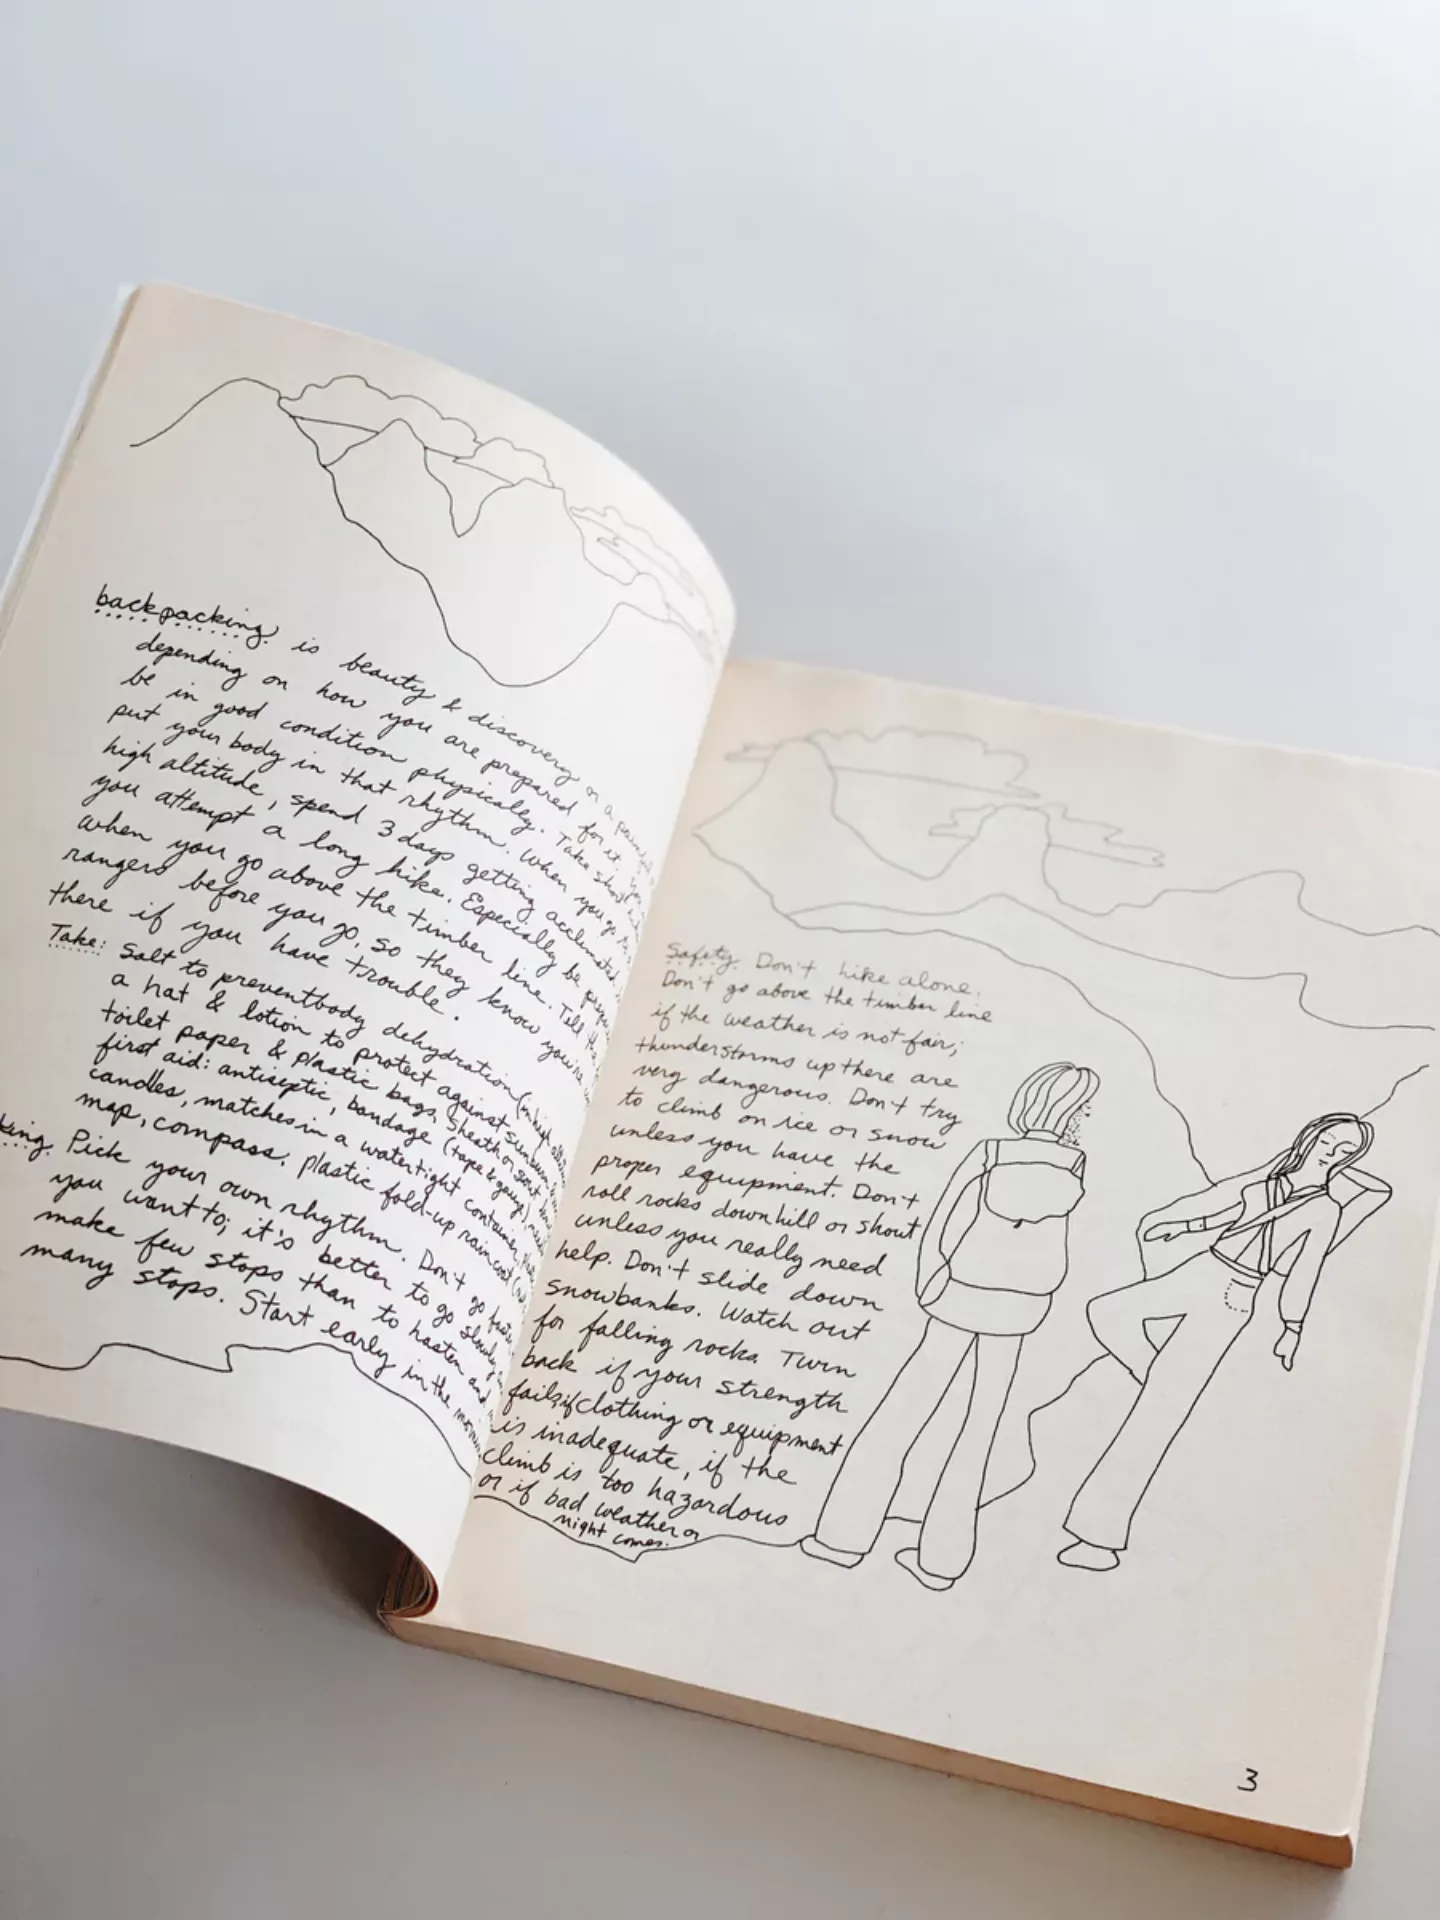 backpacking is beauty & discovery or a painful
depending on how you are prepared for it. You
be in good condition physically. Take short
put your body in that rhythm. When you go to
high altitude, spend 3 days getting acclimated
you attempt a long hike. Especially be
when you go above the timber line. Tell the
rangers before you go, so they know you're
there if you have trouble.
Take: Salt to prevent body dehydration (in high
a hat & lotion to protect against sunburn
toilet paper & plastic bags, Sheath or
first aid: antiseptic, bandage (tape & gauze),
candles, matches in a watertight container,
map, compass, plastic fold-up raincoat
king. Pick your own rhythm. Don't go
you want to; it's better to go slowly
make few stops than to hasten and
many stops. Start early in the
Safety. Don't hike alone.
Don't go above the timber line
if the weather is not fair;
thunderstorms up there are
very dangerous. Don't try
to climb on ice or snow
unless you have the
proper equipment. Don't
roll rocks downhill or shout
unless you really need
help. Don't slide down
snowbanks. Watch out
for falling rocks. Turn
back if your strength
fails, if clothing or equipment
is inadequate, if the
climb is too hazardous
or if bad weather or
night comes.
3